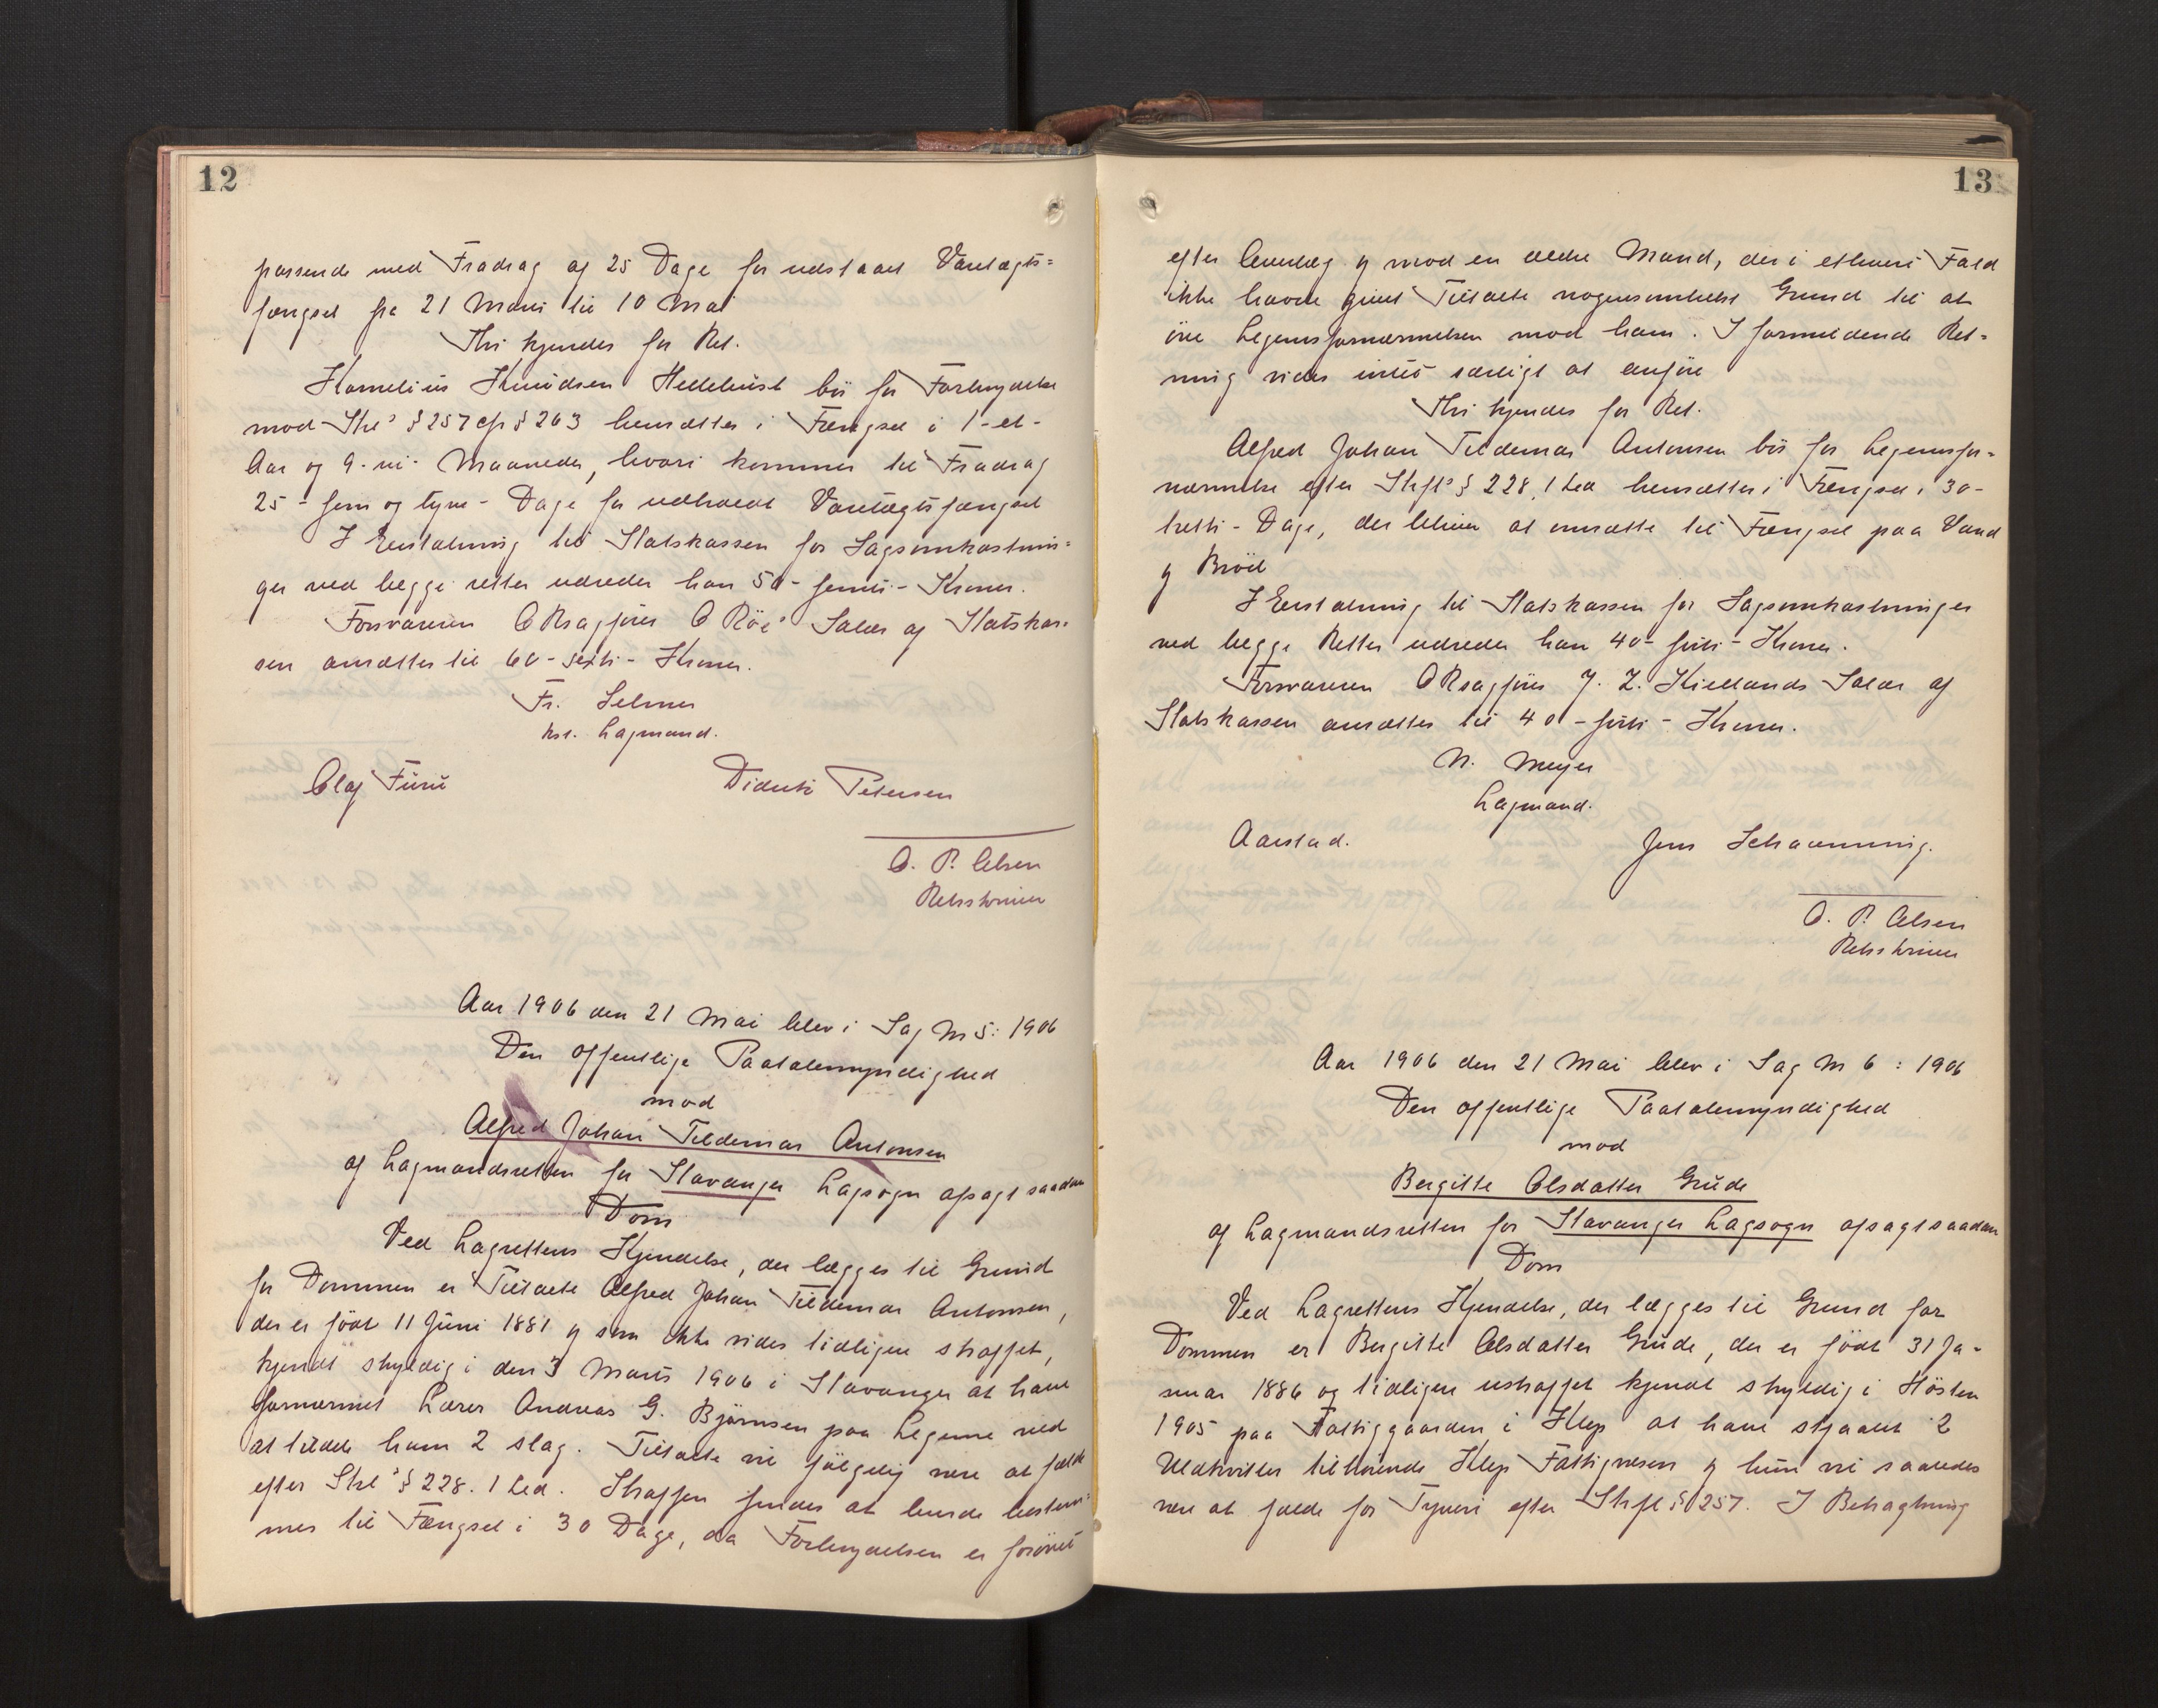 12
passende med Fradrag af 25 Dage for udstaaet Varetægts=
fængsel fra 21 Marts til 10 Mai
Thi kjendes for Ret.
Kornelius Knudsen bør for Forbrydelse
mod Strl's § 257 cfr § 263 hensættes i Fængsel i 1 - et -
Aar og 9 - ni - Maaneder, hvori kommer til Fradrag
25 - fem og tyve - Dage for udholdt Varetægtsfængsel
I Erstatning til Statskassen for Sagsomkostnin=
ger ved begge retter udreder han 50 - femti - Kroner.
Forsvareren ORsagfører O Röe's Salær af Statskas=
sen ansættes til 60 - sexti - Kroner.
Fr. Selmer
kst. Lagmand.
Olaf Furu
Didrik Petersen
O. P. Olsen
Retsskriver
Aar 1906 den 21 Mai blev i Sag No 5: 1906
Den offentlige Paatalemyndighed
mod
Alfred Johan Tildemar Antonsen
af Lagmandsretten for Stavanger Lagsogn afsagt saadan
Dom
Ved Lagrettens Kjendelse, der lægges til Grund
for Dommen er Tiltalte Alfred Johan Tildemar Antonsen,
der er født 11 Juni 1881 og som ikke vides tidligere straffet,
kjendt skyldig i den 3 Marts 1906 i Stavanger at have
fornærmet Lærer Andreas G. Bjørnsen paa Legeme ved
at tildele ham 2 slag. Tiltalte vil følgelig være at fælde
efter Strl's § 228. 1 Led. Straffen findes at burde bestem=
mes til Fængsel i 30 Dage, da Forbrydelsen er forøvet
13
efter Overlæg og mod en ældre Mand, der i ethvert Fald
ikke havde givet Tiltalte nogensomhelst Grund til at
øve Legemsfornærmelsen mod ham. I formildende Ret=
ning vides intet særligt at anføre
Thi kjendes for Ret.
Alfred Johan Tildemar Antonsen bør for Legemsfor=
nærmelse efter Strfl's § 228, 1 Led hensættes i Fængsel i 30 -
tretti - Dage, der bliver at omsætte til Fængsel paa Vand
og Brød
I Erstatning til Statskassen for Sagsomkostninger
ved begge Retter udreder han 40 - førti - Kroner.
Forsvareren ORsagfører J. Z. Kiellands Salær af
Statskassen ansættes til 40 - førti - Kroner.
N. Meyer
Lagmand.
Aarstad.
Jens Schavenning.
O. P. Olsen
Retsskriver
Aar 1906 den 21 Mai blev i Sag No 6 : 1906
Den offentlige Paatalemyndighed
mod
Bergitte Olsdatter Grude
af Lagmandsretten for Stavanger Lagsogn afsagt saadan
Dom
Ved Lagrettens Kjendelse, der lægges til Grund for
Dommen er Bergitte Olsdatter Grude, der er født 31 Ja-
nuar 1886 og tidligere ustraffet kjendt skyldig i Høsten
1905 paa Fattiggaarden i Klep at have stjaalet 2
Uldkvitler tilhørende Klep Fattigvæsen og hun vil saaledes
være at fælde for Tyveri efter Strfl § 257. I Betragtning